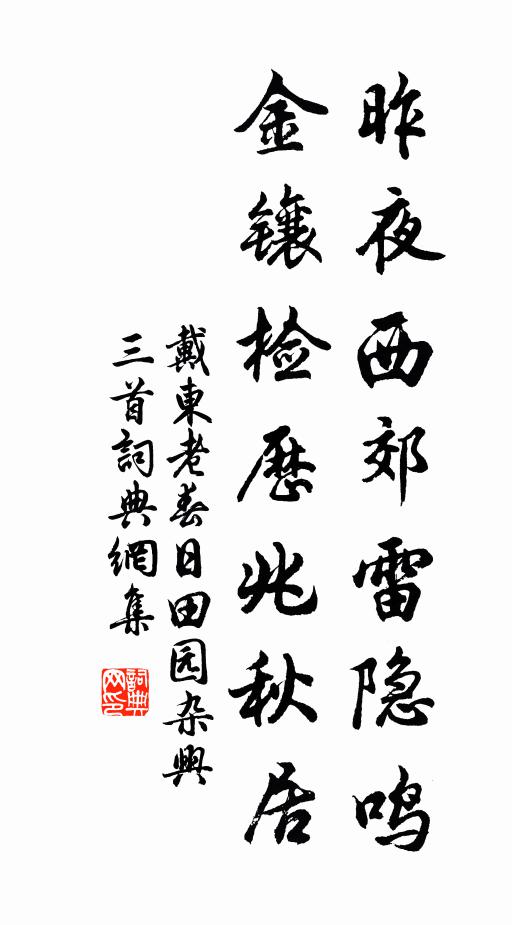 昨夜西郊雷隐鸣
金镶检历兆秋居
戴東老春日田园杂興
三首詞典網集
詞典网印